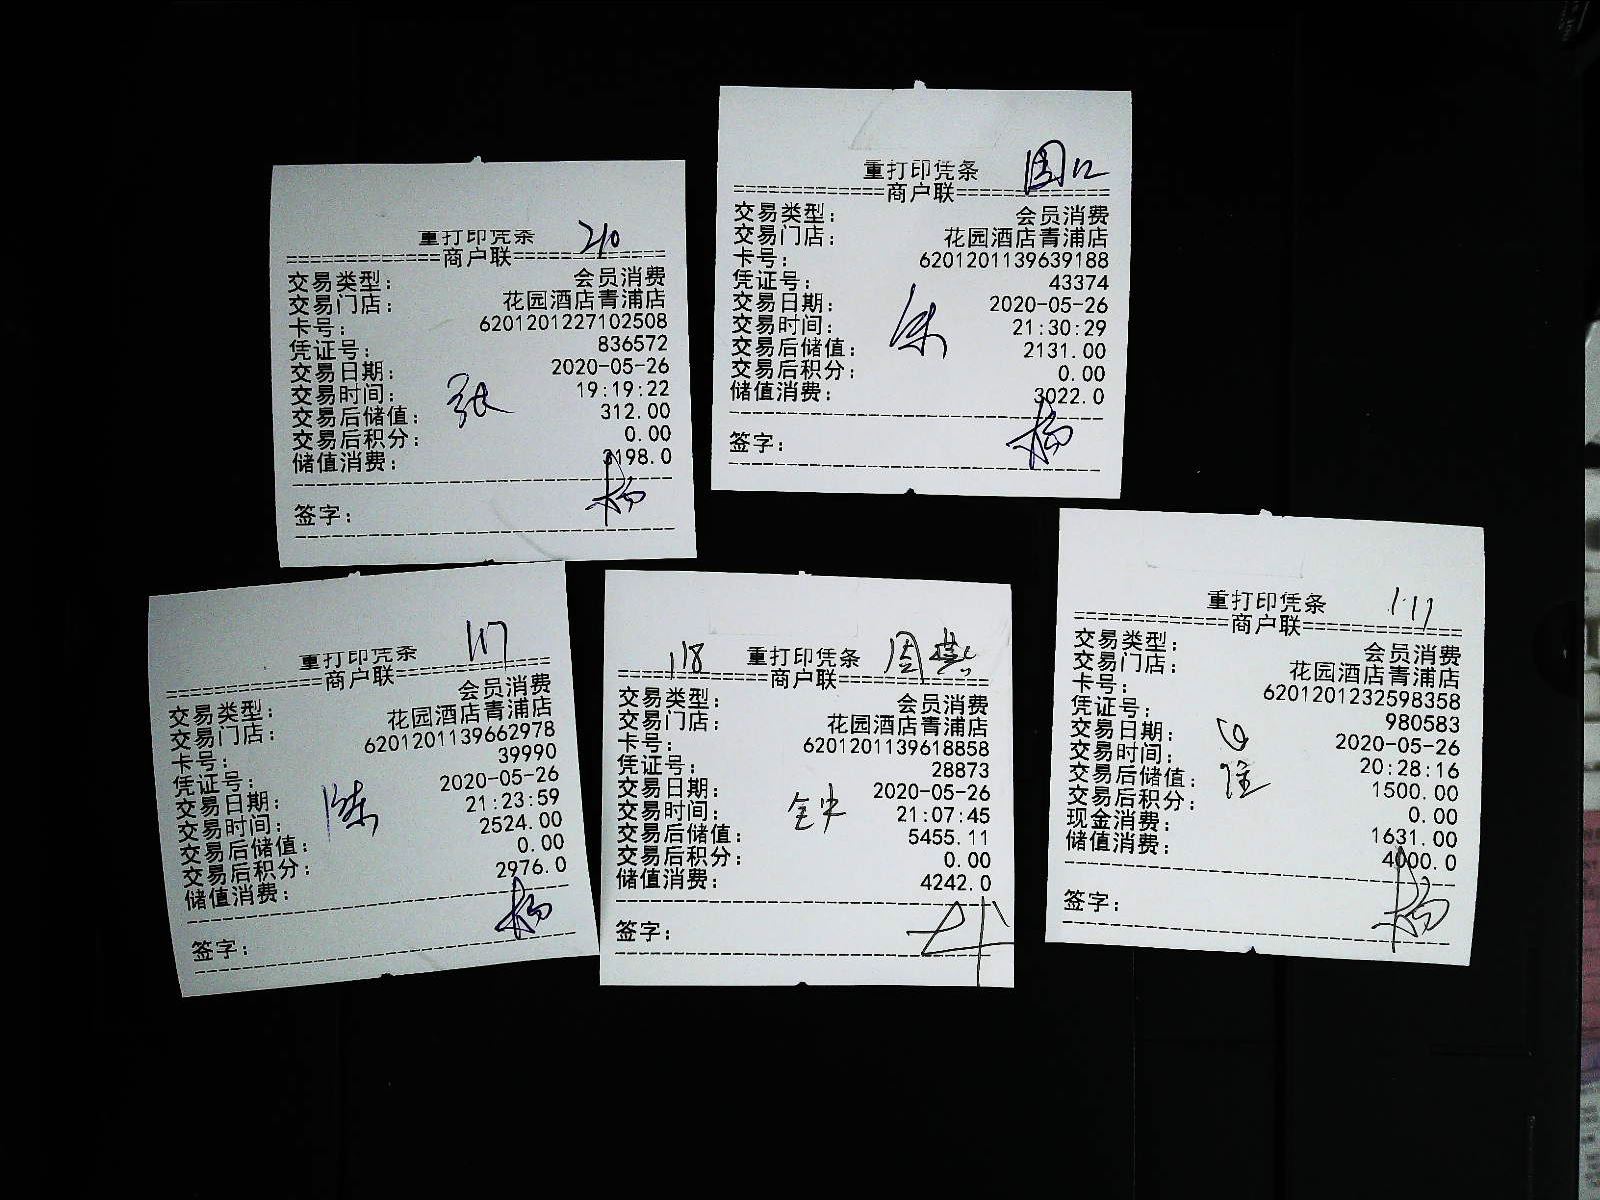 重打印凭条 210
商户联
交易类型: 会员消费
交易门店: 花园酒店青浦店
卡号: 6201201227102508
凭证号: 836572
交易日期: 2020-05-26
交易时间: 19:19:22
交易后储值: 312.00
交易后积分: 0.00
储值消费: 3198.0
张
杨
签字:
重打印凭条
商户联
交易类型: 会员消费
交易门店: 花园酒店青浦店
卡号: 6201201139639188
凭证号: 43374
交易日期: 2020-05-26
交易时间: 21:30:29
交易后储值: 2131.00
交易后积分: 0.00
储值消费: 3022.0
杨
签字:
重打印凭条 117
商户联
交易类型: 会员消费
交易门店: 花园酒店青浦店
卡号: 6201201139662978
凭证号: 39990
交易日期: 2020-05-26
交易时间: 21:23:59
交易后储值: 2524.00
交易后积分: 0.00
储值消费: 2976.0
陈
杨
签字:
118 重打印凭条
商户联
交易类型: 会员消费
交易门店: 花园酒店青浦店
卡号: 6201201139618858
凭证号: 28873
交易日期: 2020-05-26
交易时间: 21:07:45
交易后储值: 5455.11
交易后积分: 0.00
储值消费: 4242.0
签字:
重打印凭条
商户联
交易类型: 会员消费
交易门店: 花园酒店青浦店
卡号: 6201201232598358
凭证号: 980583
交易日期: 2020-05-26
交易时间: 20:28:16
交易后储值: 1500.00
交易后积分: 0.00
现金消费: 1631.00
储值消费: 4000.0
杨
签字: